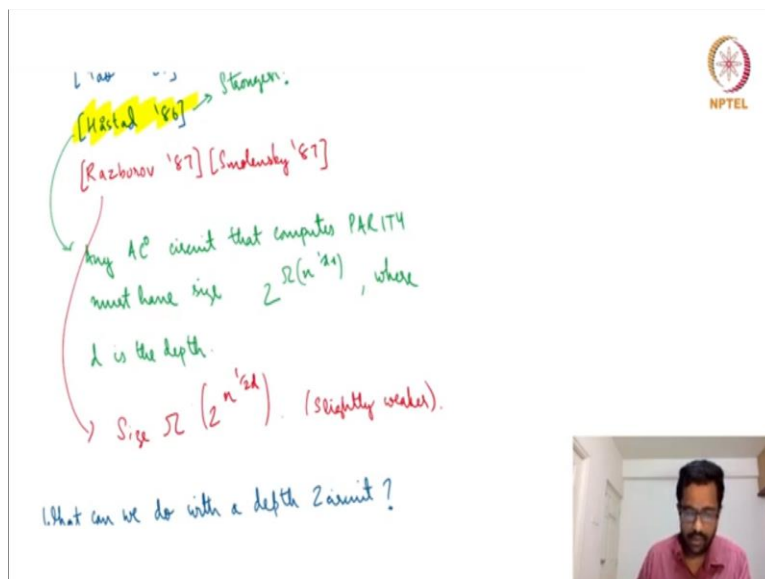 NPTEL
Stronger.
[Håstad '86]
[Razborov '87] [Smolensky '87]
Any AC⁰ circuit that computes PARITY
must have size 2^Ω(n^1/d-1), where
d is the depth.
Size Ω(2^n^1/2d). (Slightly weaker).
What can we do with a depth 2 circuit?